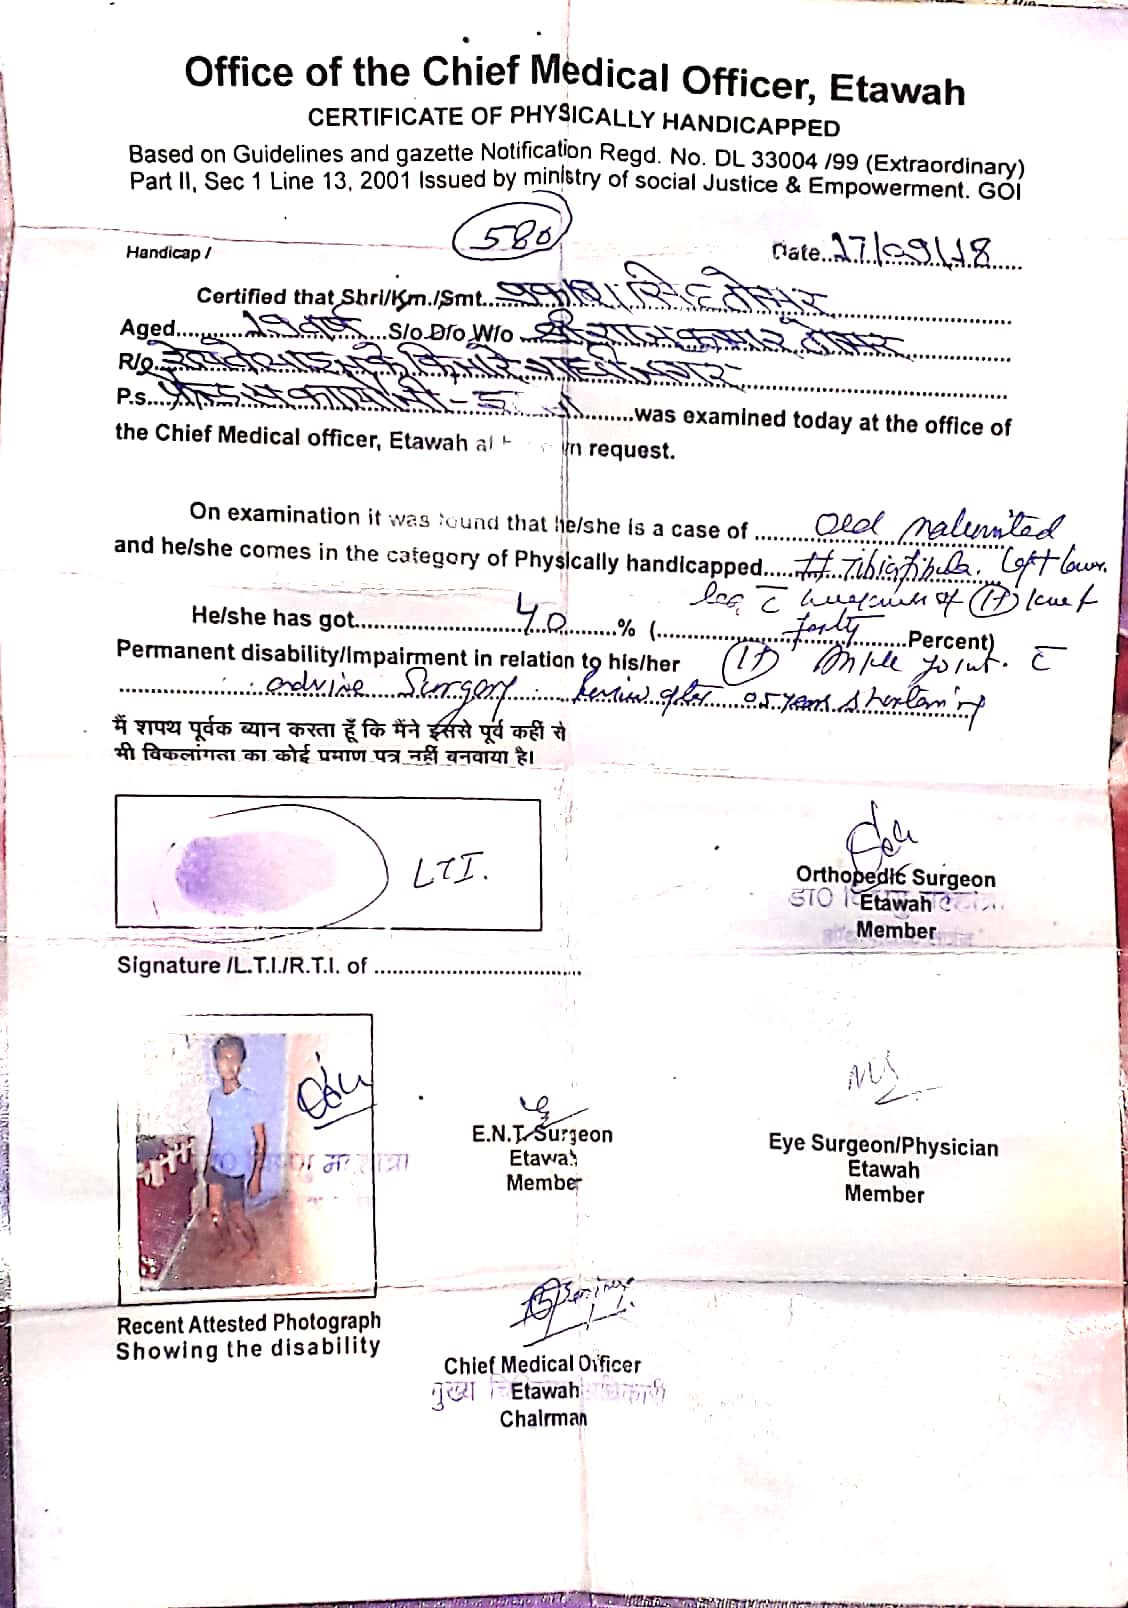 Office of the Chief Medical Officer, Etawah
CERTIFICATE OF PHYSICALLY HANDICAPPED
Based on Guidelines and gazette Notification Regd. No. DL 33004 /99 (Extraordinary)
Part II, Sec 1 Line 13, 2001 Issued by ministry of social Justice & Empowerment. GOI
580
Handicap / Date..27/09/18
Certified that Shri/Km./Smt.
Aged 19 वर्ष S/o D/o W/o श्री
R/o के किनारे
P.s. was examined today at the office of
the Chief Medical officer, Etawah request.
On examination it was found that he/she is a case of Old Malunited
and he/she comes in the category of Physically handicapped # Tibia fibula. Left lower
leg
He/she has got 40 % (forty Percent)
Permanent disability/Impairment in relation to his/her (Lt) Ankle Joint.
advise Surgery. Review after 05 years
मैं शपथ पूर्वक ब्यान करता हूँ कि मैंने इससे पूर्व कहीं से
भी विकलांगता का कोई प्रमाण पत्र नहीं बनवाया है।
LTI.
Orthopedic Surgeon
Etawah
Member
Signature /L.T.I./R.T.I. of
E.N.T. Surgeon
Etawah
Member
Eye Surgeon/Physician
Etawah
Member
Recent Attested Photograph
Showing the disability
Chief Medical Officer
मुख्य Etawah
Chairman